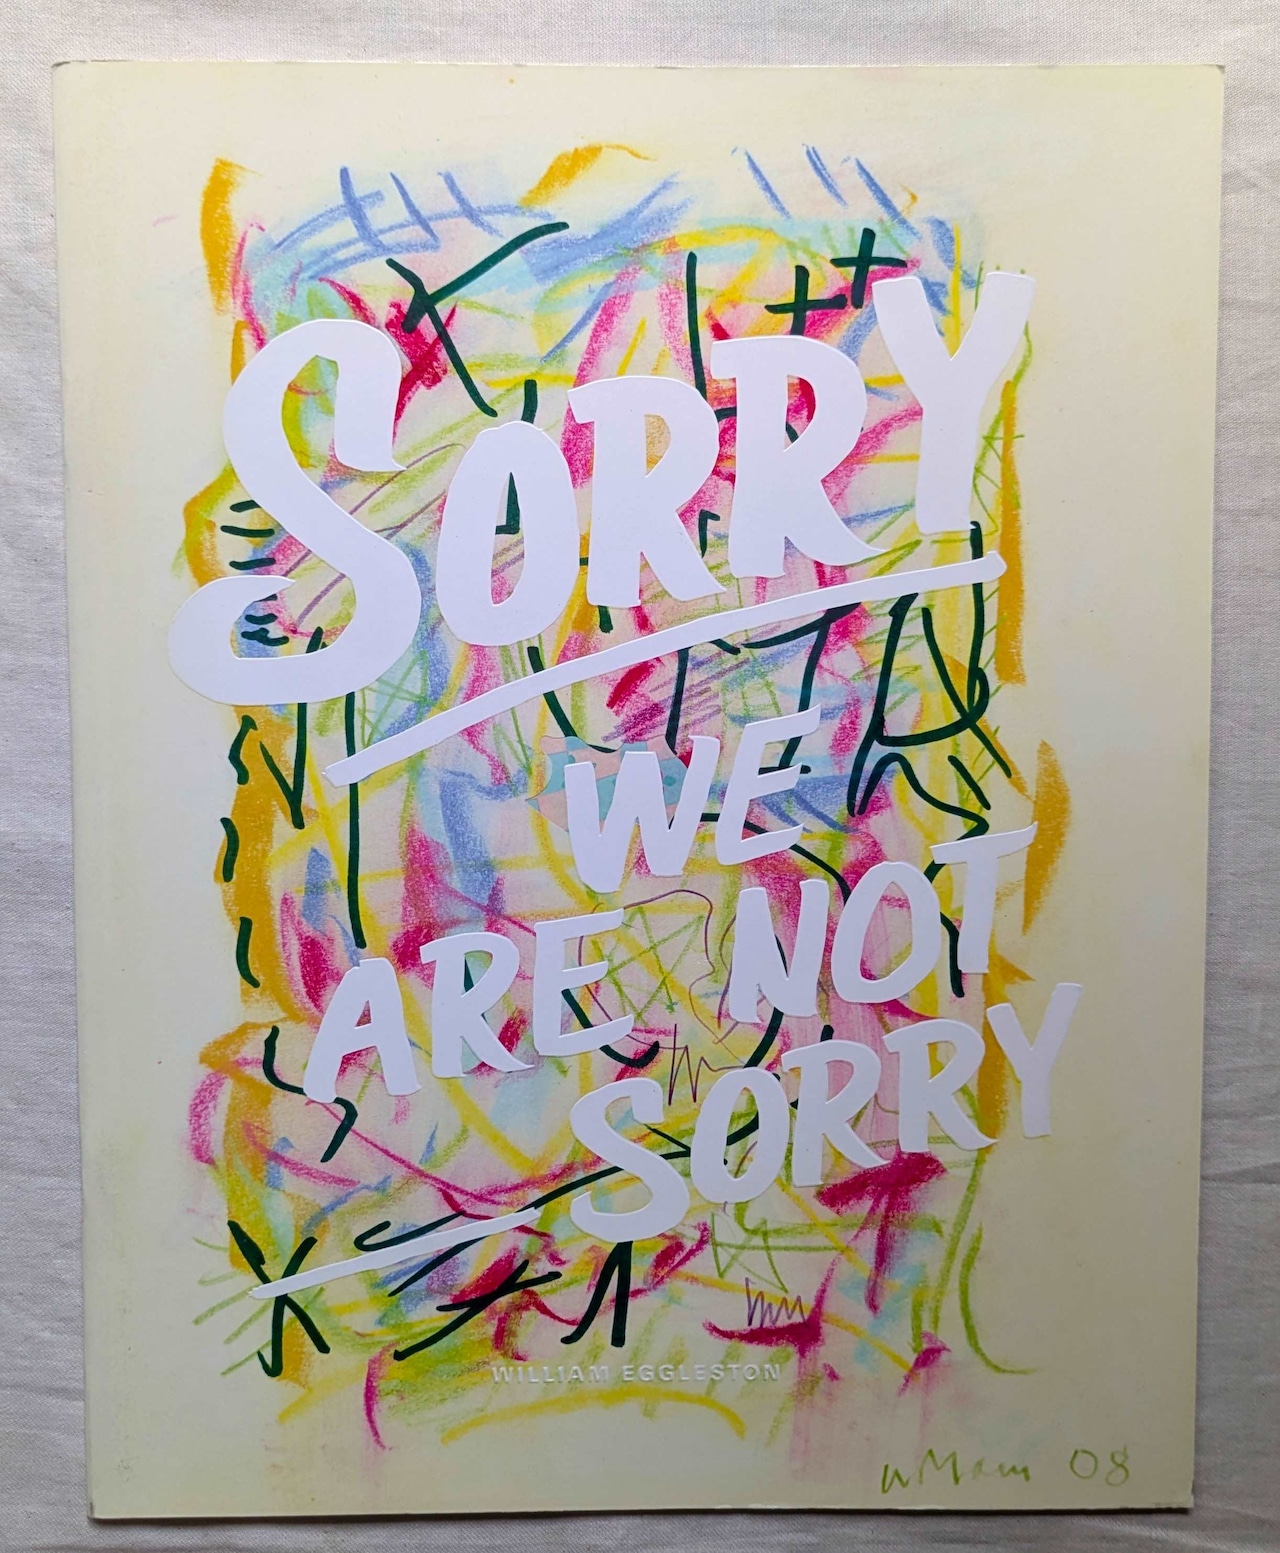 SORRY
WE
ARE NOT
SORRY
WILLIAM EGGLESTON
William 08